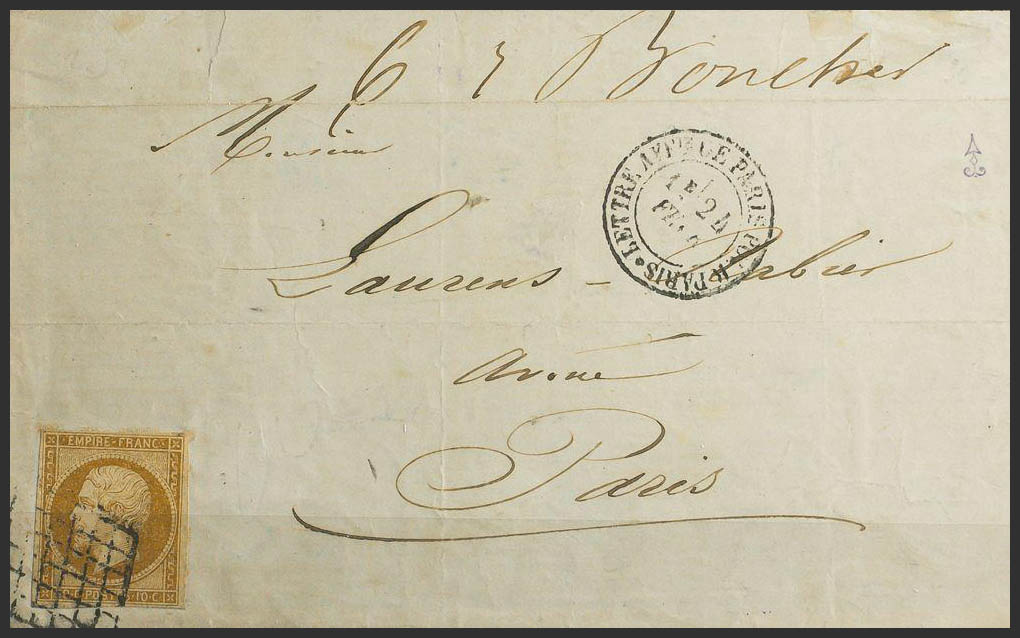 Boucher
Monsieur
LETTRE AFF. DE PARIS POUR PARIS
1E/
24
Laurens - Rabier
avoué
Paris
EMPIRE-FRANC.
POSTES 10·C·